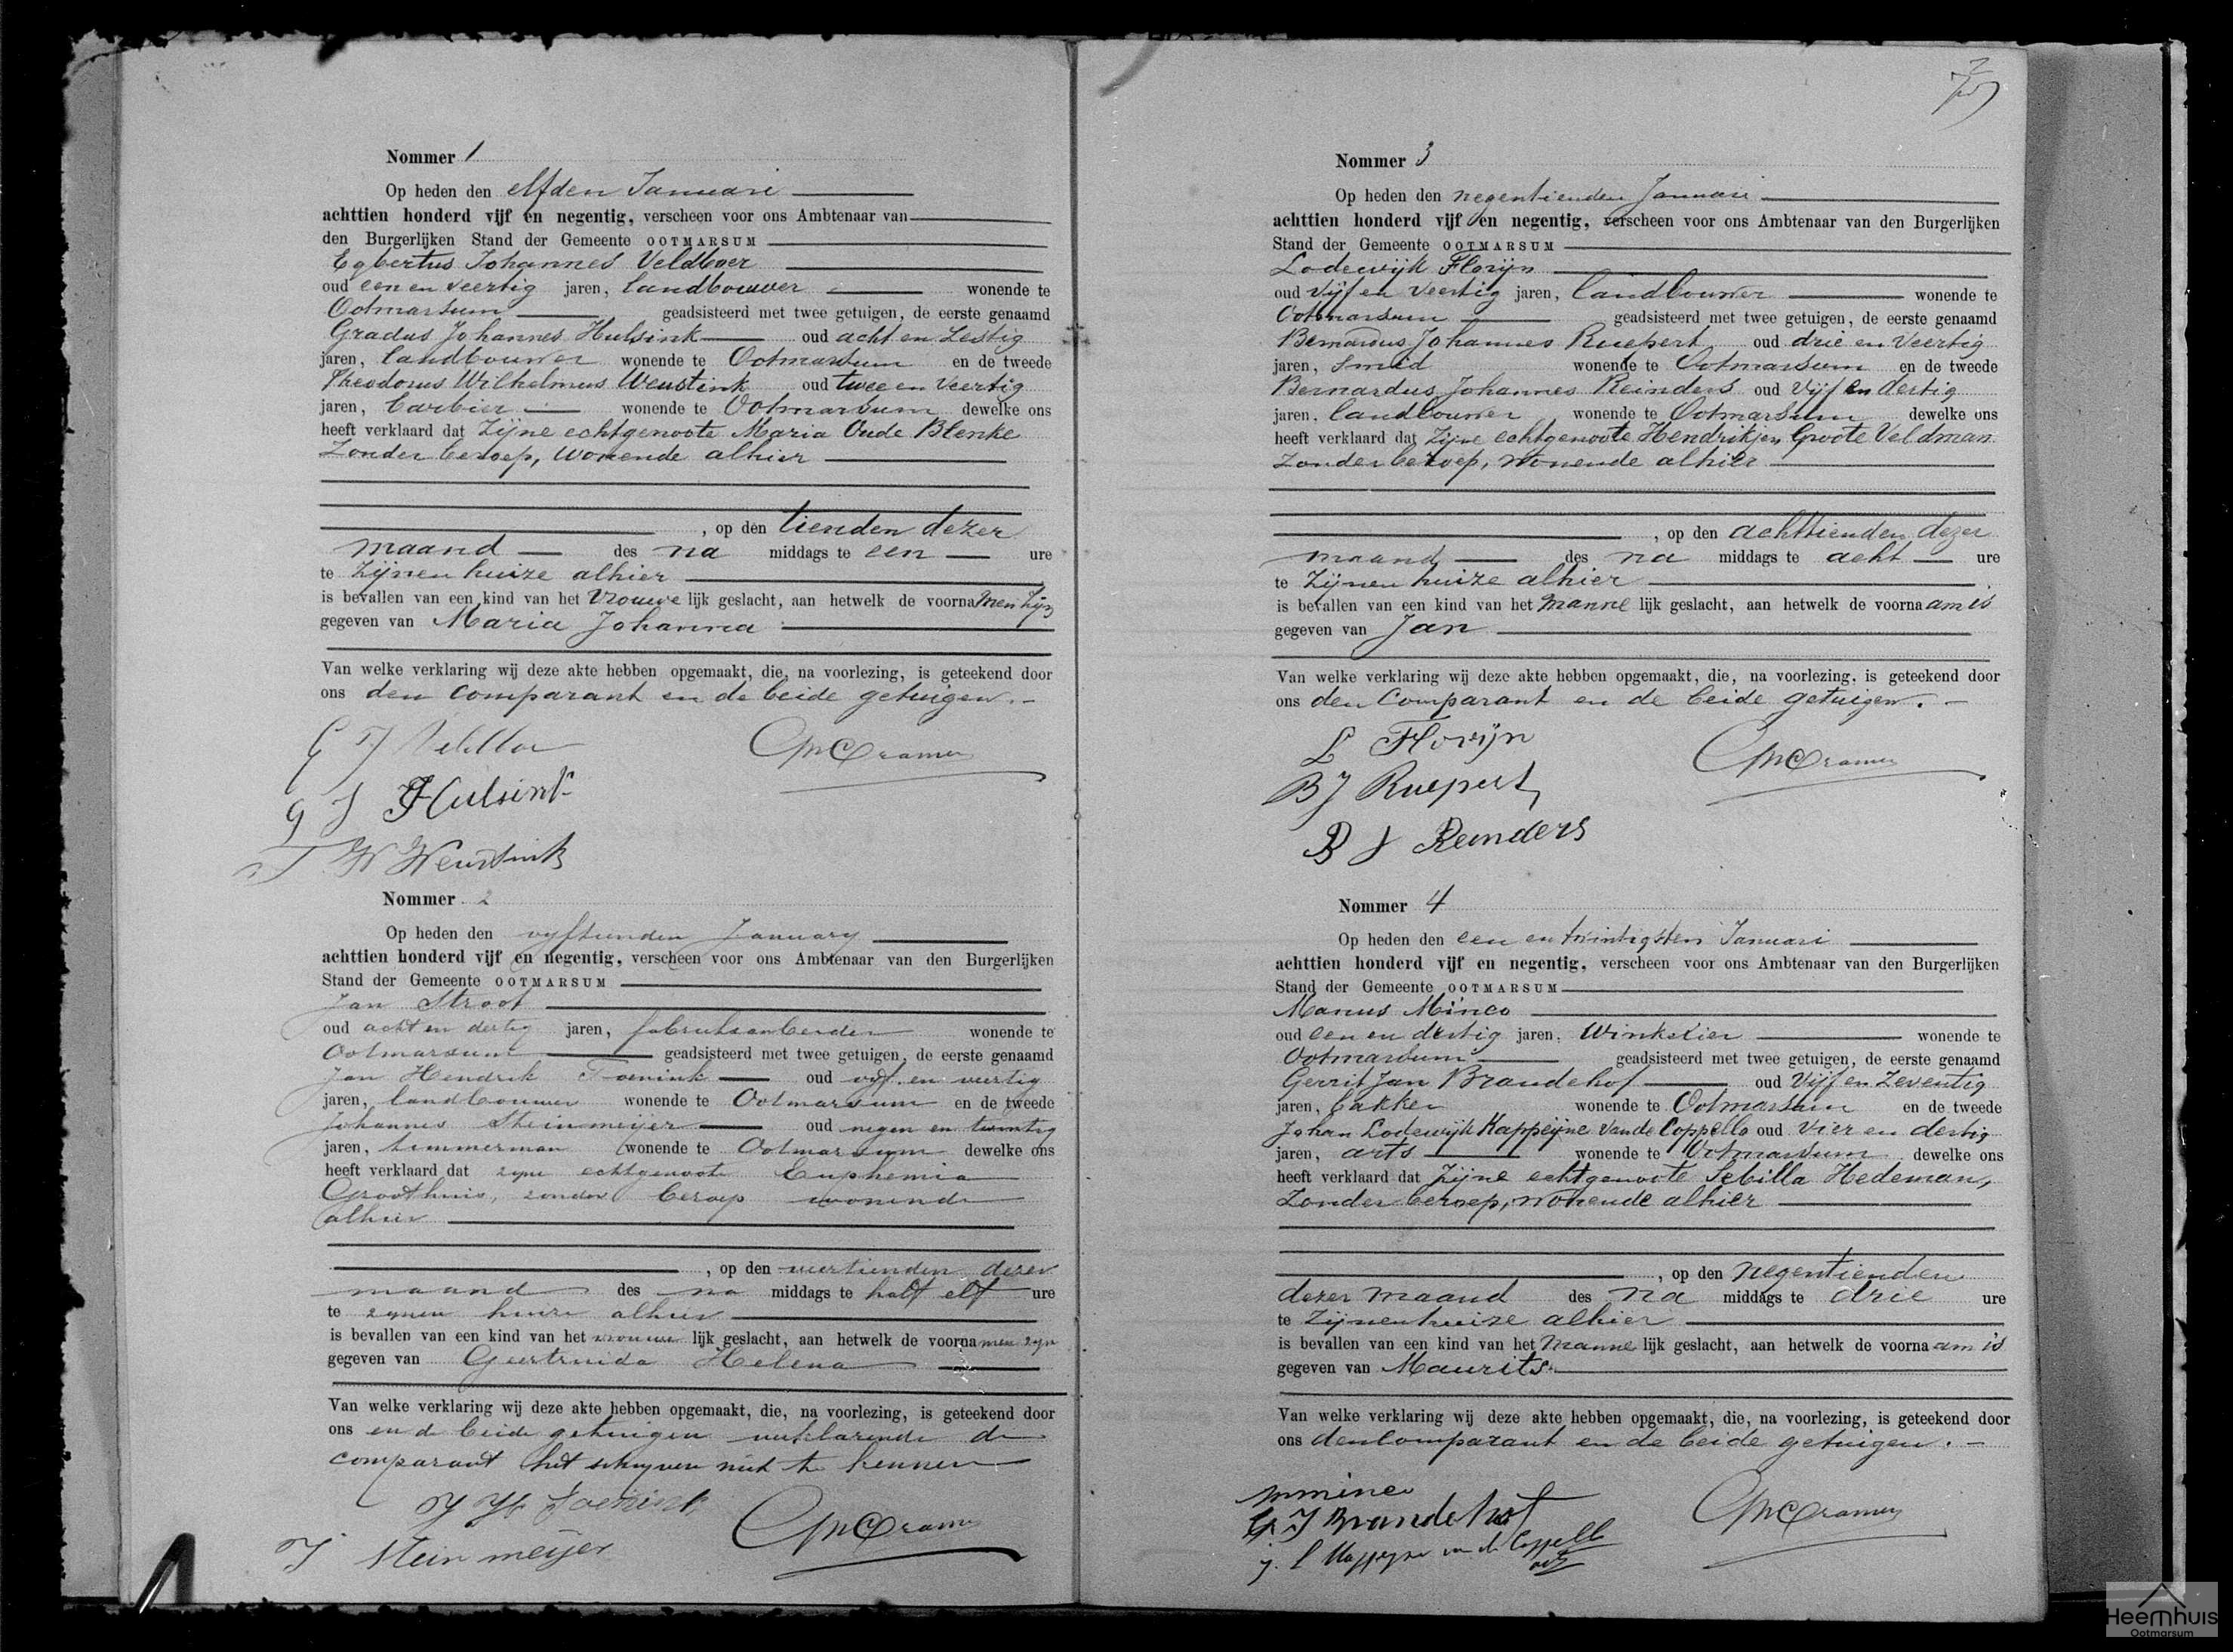 Nommer 1
Op heden den elfden Januari
achttien honderd vijf en negentig, verscheen voor ons Ambtenaar van
den Burgerlijken Stand der Gemeente OOTMARSUM
Egbertus Johannes Veldboer
oud een en veertig jaren, landbouwer wonende te
Ootmarsum geadsisteerd met twee getuigen, de eerste genaamd
Gradus Johannes Hulsink oud acht en Zestig
jaren, landbouwer wonende te Ootmarsum en de tweede
Theodorus Wilhelmus Weustink oud twee en Veertig
jaren, barbier wonende te Ootmarsum dewelke ons
heeft verklaard dat Zijne echtgenoote Maria Oude Blenke
Zonder beroep, wonende alhier
, op den tienden dezer
maand des na middags te een ure
te Zijnen huize alhier
is bevallen van een kind van het Vrouwe lijk geslacht, aan hetwelk de voorna men Zijn
gegeven van Maria Johanna
Van welke verklaring wij deze akte hebben opgemaakt, die, na voorlezing, is geteekend door
ons den comparant en de beide getuigen.
E J Veldboer
Cramer
G J Hulsink
T W Weustink
Nommer 2
Op heden den vyftienden January
achttien honderd vijf en negentig, verscheen voor ons Ambtenaar van den Burgerlijken
Stand der Gemeente OOTMARSUM
Jan Stroot
oud acht en dertig jaren, fabrieksarbeider wonende te
Ootmarsum geadsisteerd met twee getuigen, de eerste genaamd
Jan Hendrik oud vyf en veertig
jaren, landbouwer wonende te Ootmarsum en de tweede
Johannes Steinmeijer oud negen en twintig
jaren, timmerman wonende te Ootmarsum dewelke ons
heeft verklaard dat zyne echtgenoote Euphemia
Groothuis, zonder beroep wonende
alhier
, op den veertienden dezer
maand des na middags te half elf ure
te zynen huize alhier
is bevallen van een kind van het vrouwe lijk geslacht, aan hetwelk de voorna men zyn
gegeven van Geertruida Helena
Van welke verklaring wij deze akte hebben opgemaakt, die, na voorlezing, is geteekend door
ons en de beide getuigen verklarende de
comparant het schryven niet te kennen
J H
Cramer
J Steinmeijer
Nommer 3
Op heden den negentienden Januari
achttien honderd vijf en negentig, verscheen voor ons Ambtenaar van den Burgerlijken
Stand der Gemeente OOTMARSUM
Lodewijk Florijn
oud Vijf en Veertig jaren, landbouwer wonende te
Ootmarsum geadsisteerd met twee getuigen, de eerste genaamd
Bernardus Johannes Ruepert oud drie en Veertig
jaren, smid wonende te Ootmarsum en de tweede
Bernardus Johannes Reinders oud Vijf en dertig
jaren, landbouwer wonende te Ootmarsum dewelke ons
heeft verklaard dat Zijne echtgenoote Hendrikjen Groote Veldman
Zonder beroep, wonende alhier
, op den achttienden dezer
maand des na middags te acht ure
te Zijnen huize alhier
is bevallen van een kind van het manne lijk geslacht, aan hetwelk de voorna am is
gegeven van Jan
Van welke verklaring wij deze akte hebben opgemaakt, die, na voorlezing, is geteekend door
ons den Comparant en de beide getuigen.
L Florijn
Cramer
B J Ruepert
B J Reinders
Nommer 4
Op heden den een en twintigsten Januari
achttien honderd vijf en negentig, verscheen voor ons Ambtenaar van den Burgerlijken
Stand der Gemeente OOTMARSUM
Manus Minco
oud een en dertig jaren, Winkelier wonende te
Ootmarsum geadsisteerd met twee getuigen, de eerste genaamd
Gerrit Jan Brandehof oud Vijf en Zeventig
jaren, bakker wonende te Ootmarsum en de tweede
Johan Lodewijk Kappeijne Van de Coppello oud Vier en dertig
jaren, arts wonende te Ootmarsum dewelke ons
heeft verklaard dat Zijne echtgenoote Sebilla Hedeman,
Zonder beroep, wonende alhier
, op den negentienden
dezer maand des na middags te drie ure
te Zijnen huize alhier
is bevallen van een kind van het Manne lijk geslacht, aan hetwelk de voorna am is
gegeven van Maurits.
Van welke verklaring wij deze akte hebben opgemaakt, die, na voorlezing, is geteekend door
ons den Comparant en de beide getuigen.
M Minco
G J Brandehof
Cramer
J. L Kappeyne van de Coppello
arts
Heemhuis
Ootmarsum